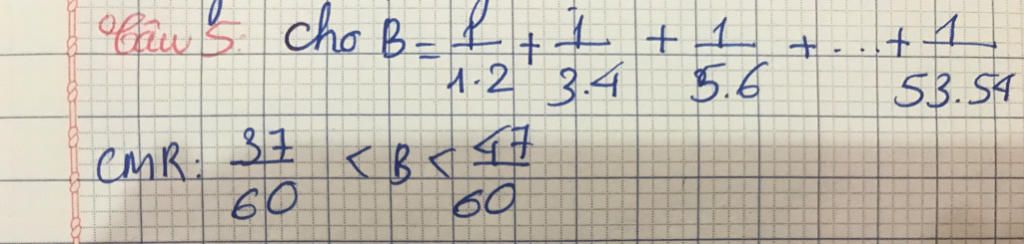 Câu 5: Cho B = 1/1.2 + 1/3.4 + 1/5.6 + ... + 1/53.54
CMR: 37/60 < B < 47/60